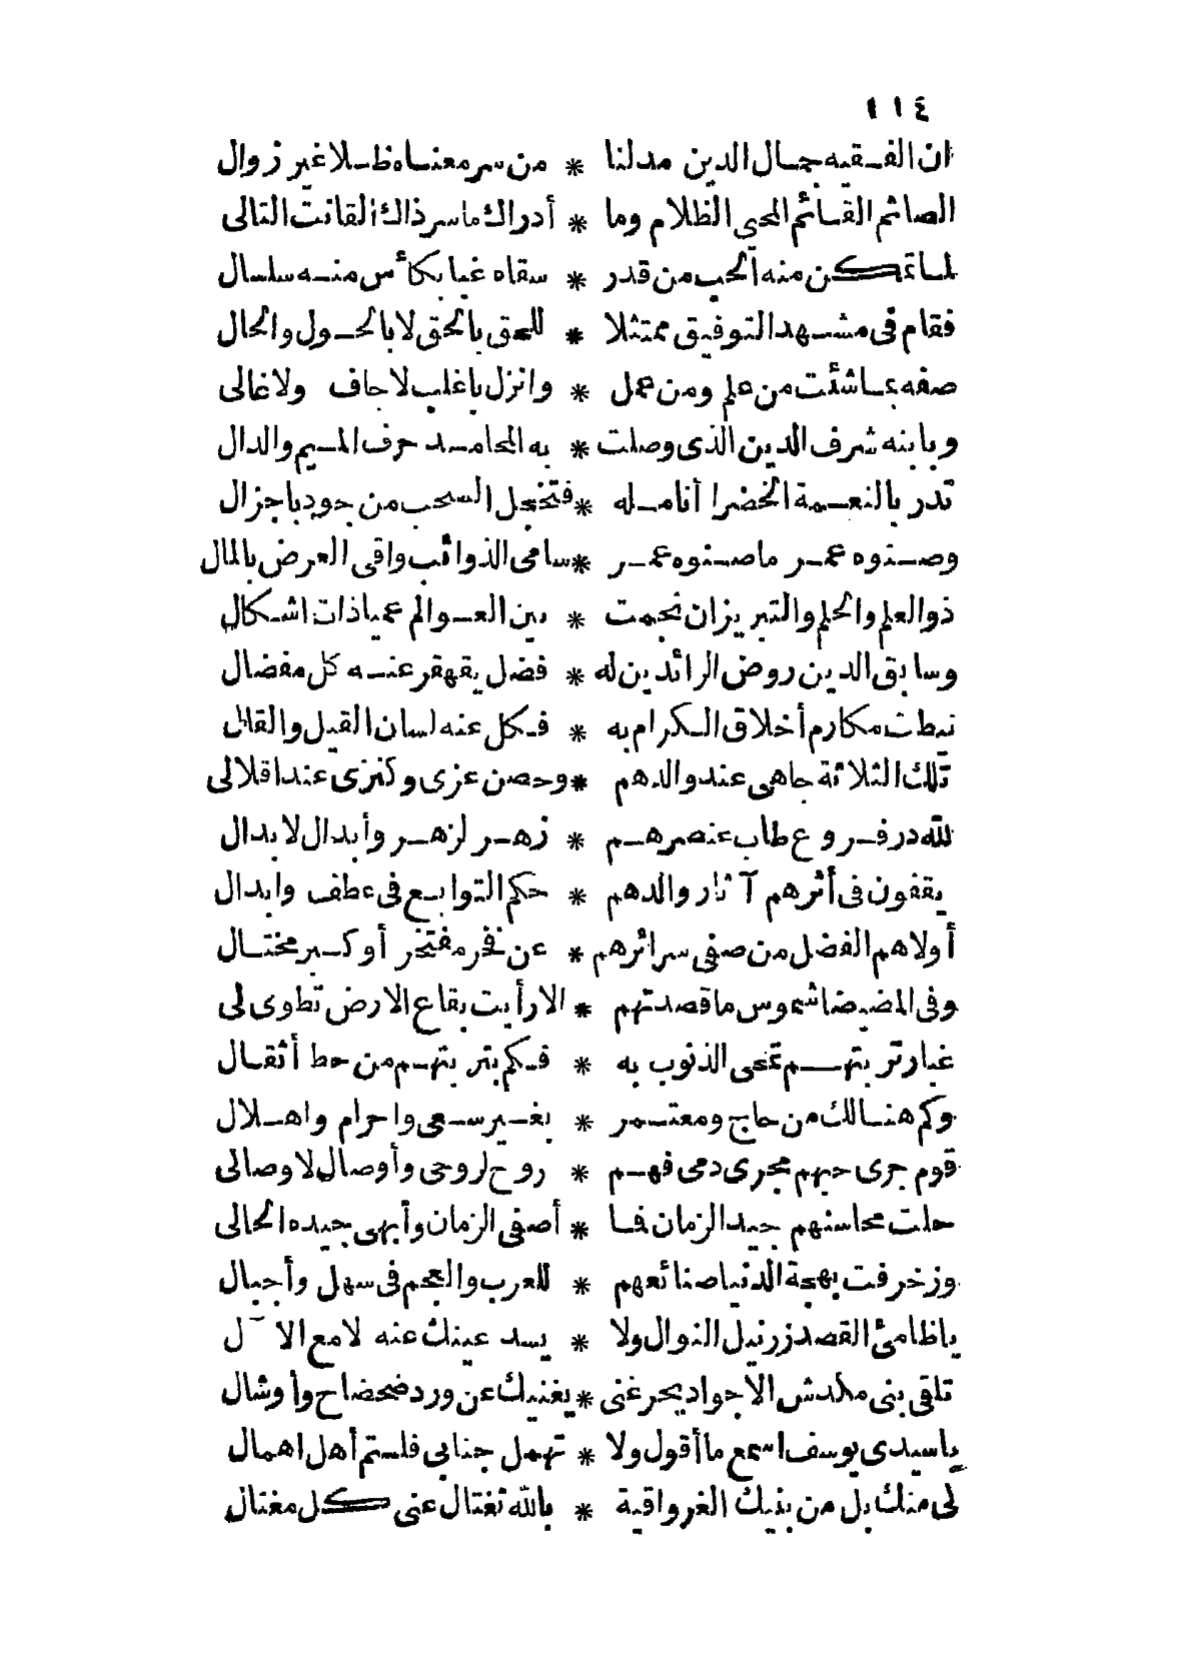 ١١٤
ان الفقيه جمال الدين مد لنا * من سر معناه ظلا غير زوال
الصائم القائم المحي الظلام وما * أدراك ما سر ذاك القانت التالى
لما تمكن منه الحب من قدر * سقاه غيبا بكأس منه سلسال
فقام فى مشهد التوفيق ممتثلا * للحق بالحق لا بالحول والحال
صفه بما شئت من علم ومن عمل * وانزل باغلب لا جاف ولا غالى
وبابنه شرف الدين الذى وصلت * به المحامد حرف الميم والدال
تدر بالنعمة الخضرا أنامله * فتخجل السحب من جود باجزال
وصنوه عمر ما صنوه عمر * سامى الذوائب واقى العرض بالمال
ذو العلم والحلم والتبريزان نجمت * بين العوالم عمياذات اشكال
وسابق الدين روض الرائدين له * فضل يقهقر عنه كل مفضال
نيطت مكارم أخلاق الكرام به * فكل عنه لسان القيل والقال
تلك الثلاثة جاهى عند والدهم * وحصن عزى وكنزى عند اقلالى
لله در فروع طاب عنصرهم * زهر لزهر وأبدال لابدال
يقفون فى أثرهم آثار والدهم * حكم التوابع فى عطف وابدال
أولاهم الفضل من صفى سرائرهم * عن فخر مفتخر أو كبر مختال
وفى المضيضا شموس ما قصدتهم * الا رأيت بقاع الارض تطوى لى
غبار تربتهم تمحى الذنوب به * فكم بتربتهم من حط أثقال
وكم هنالك من حاج ومعتمر * بغير سعى واحرام واهلال
قوم جرى حبهم مجرى دمى فهم * روح لروحى وأوصال لاوصالى
حلت محاسنهم جيد الزمان فما * أصفى الزمان وأبهى جيده الحالى
وزخرفت بهجة الدنيا صنائعهم * للعرب والعجم فى سهل وأجبال
يا ظامئ القصد زر نيل النوال ولا * يسد عينك عنه لامع الآل
تلقى بنى مكدش الاجواد بحر غنى * يغنيك عن ورد ضحضاح وأوشال
يا سيدى يوسف اسمع ما أقول ولا * تهمل جنابى فلستم أهل اهمال
لى منك بل من بنيك الغر واقية * بالله تغتال عنى كل مغتال